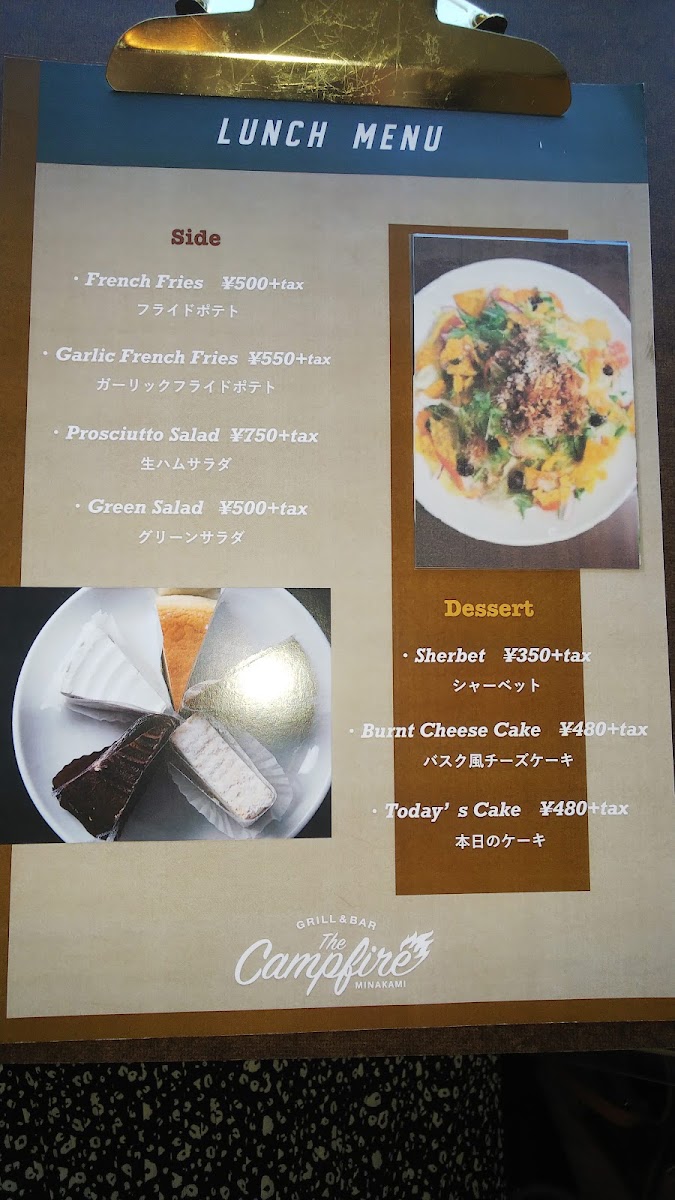 LUNCH MENU
Side
・French Fries ¥500+tax
フライドポテト
・Garlic French Fries ¥550+tax
ガーリックフライドポテト
・Prosciutto Salad ¥750+tax
生ハムサラダ
・Green Salad ¥500+tax
グリーンサラダ
Dessert
・Sherbet ¥350+tax
シャーベット
・Burnt Cheese Cake ¥480+tax
バスク風チーズケーキ
・Today's Cake ¥480+tax
本日のケーキ
GRILL & BAR
The
Campfire
MINAKAMI